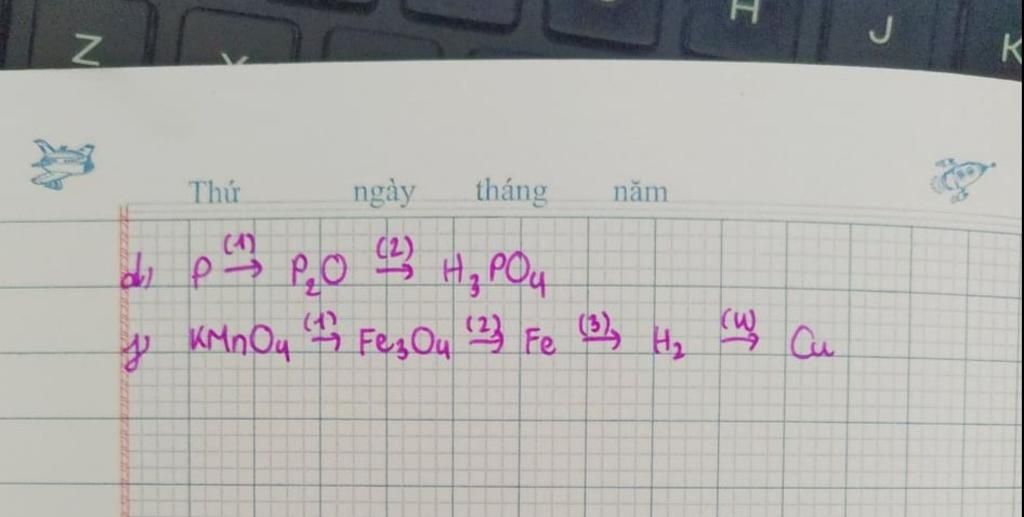 Z H J K
Thứ ngày tháng năm
d, P (1)→ P₂O (2)→ H₃PO₄
KMnO₄ (1)→ Fe₃O₄ (2)→ Fe (3)→ H₂ (4)→ Cu